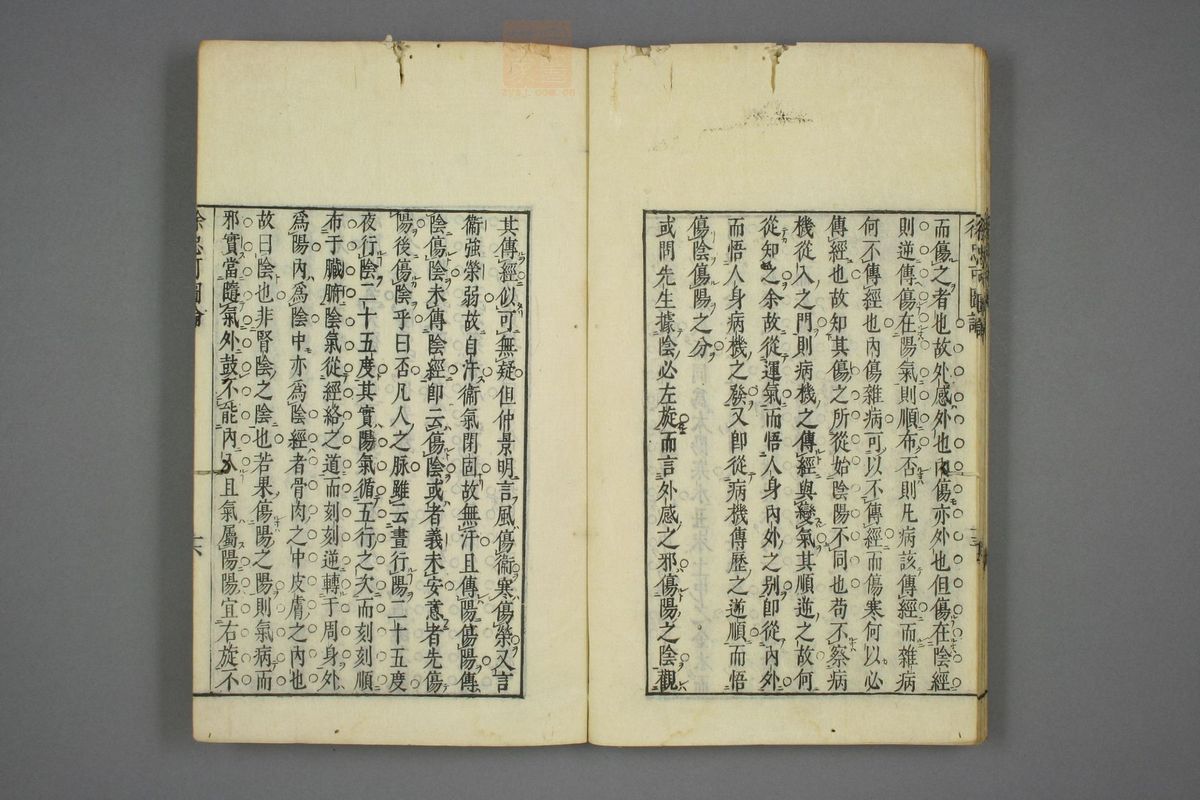 而傷之者也故外感外也內傷亦外也但傷在陰經
則逆傳傷在陽氣則順布否則凡病該傳經而雜病
何不傳經也內傷雜病可以不傳經而傷寒何以必
傳經也故知其傷之所從始陰陽不同也苟不察病
機從入之門則病機之傳經與變氣其順逆之故何
從知之余故從運氣而悟人身內外之別即從內外
而悟人身病機之發又即從病機傳歷之逆順而悟
傷陰傷陽之分
或問先生據陰必左旋而言外感之邪傷陽之陰觀
其傳經似可無疑但仲景明言風傷衞寒傷榮又言
衞強榮弱故自汗衞氣閉固故無汗且傳陽傷陽傳
陰傷陰未傳陰經即云傷陰或者義未安意者先傷
陽後傷陰乎曰否凡人之脉雖云晝行陽二十五度
夜行陰二十五度其實陽氣循五行之次而刻刻順
布于臟腑陰氣從經絡之道而刻刻逆轉于周身外
爲陽內爲陰中亦爲陰經者骨肉之中皮膚之內也
故曰陰也非腎陰之陰也若果傷陽之陽則氣病而
邪實當隨氣外鼓不能內入且氣屬陽陽宜右旋不